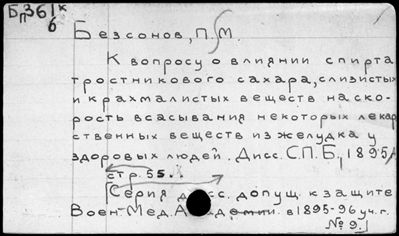 Бп361к
6
Безсонов, П. М.
К вопросу о влиянии спирта
тростникового сахара, слизистых
и крахмалистых веществ на ско-
рость всасывания некоторых лекар
ственных веществ из желудка у
здоровых людей. Дисс. С.П.Б., 1895
стр. 55.
[Серия дисс. допущ. к защите
Воен-Мед. Академии в 1895-96 уч. г.
№ 9.]